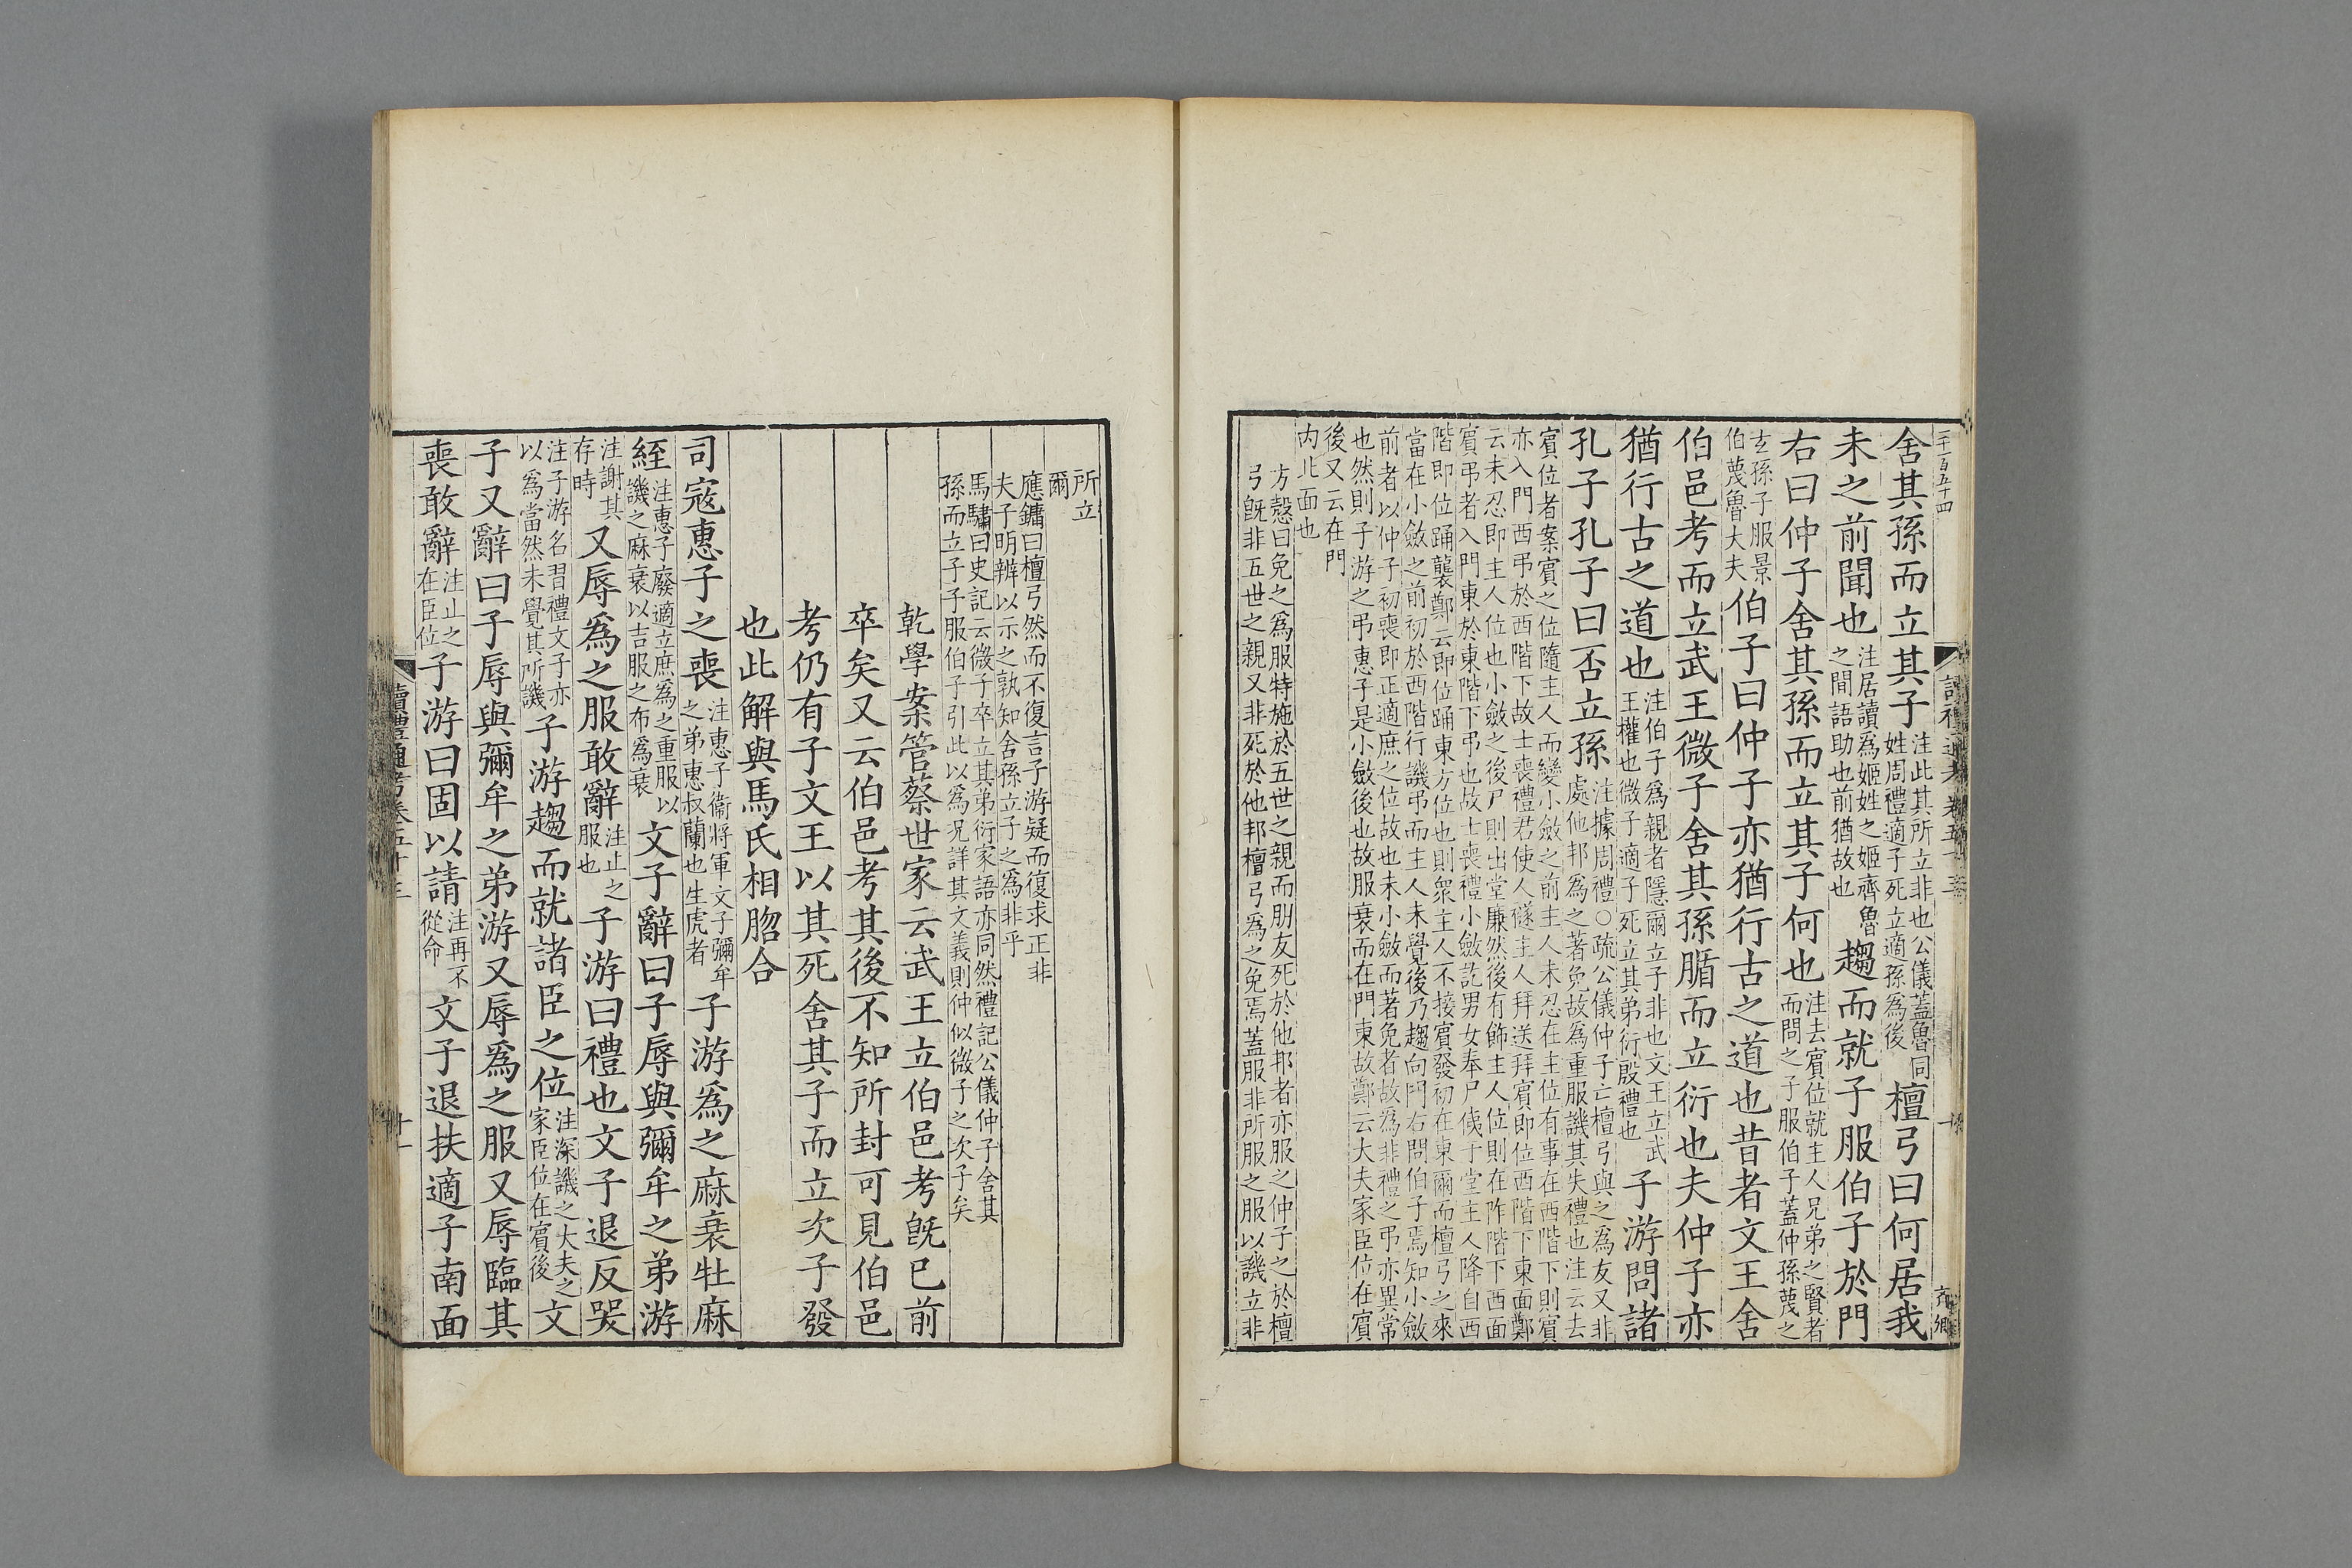 二千一百五十四
舍其孫而立其子注此其所立非也公儀蓋魯同姓周禮適子死立適孫為後檀弓曰何居我
未之前聞也注居讀為姬姓之姬齊魯之間語助也前猶故也趨而就子服伯子於門
右曰仲子舍其孫而立其子何也注去賓位就主人兄弟之賢者而問之子服伯子蓋仲孫蔑之
玄孫子服景伯蔑魯大夫伯子曰仲子亦猶行古之道也昔者文王舍
伯邑考而立武王微子舍其孫腯而立衍也夫仲子亦
猶行古之道也注伯子為親者隱爾立子非也文王立武王權也微子適子死立其弟衍殷禮也子游問諸
孔子孔子曰否立孫注據周禮○疏公儀仲子亡檀弓與之為友又非處他邦為之著免故為重服譏其失禮也注云去
賓位者案賓之位隨主人而變小斂之前主人未忍在主位有事在西階下則賓
亦入門西弔於西階下故士喪禮君使人襚主人拜送拜賓即位西階下東面鄭
云未忍即主人位也小斂之後尸則出堂廉然後有飾主人位則在阼階下西面
賓弔者入門東於東階下弔也故士喪禮小斂訖男女奉尸侇于堂主人降自西
階即位踊襲鄭云即位踊東方位也則衆主人不接賓發初在東爾而檀弓之來
當在小斂之前初於西階行譏弔而主人未覺後乃趨向門右問伯子焉知小斂
前者以仲子初喪即正適庶之位故也未小斂而著免者故為非禮之弔亦異常
也然則子游之弔惠子是小斂後也故服衰而在門東故鄭云大夫家臣位在賓
後又云在門
内北面也
方慤曰免之為服特施於五世之親而朋友死於他邦者亦服之仲子之於檀
弓既非五世之親又非死於他邦檀弓為之免焉蓋服非所服之服以譏立非
所立
爾
應鏞曰檀弓然而不復言子游疑而復求正非
夫子明辨以示之孰知舍孫立子之為非乎
馬驌曰史記云微子卒立其弟衍家語亦同然禮記公儀仲子舍其
孫而立子子服伯子引此以為况詳其文義則仲似微子之次子矣
乾學案管蔡世家云武王立伯邑考旣已前
卒矣又云伯邑考其後不知所封可見伯邑
考仍有子文王以其死舍其子而立次子發
也此解與馬氏相脗合
司寇惠子之喪注惠子衞將軍文子彌牟之弟惠叔蘭也生虎者子游為之麻衰牡麻
絰注惠子廢適立庶為之重服以譏之麻衰以吉服之布為衰文子辭曰子辱與彌牟之弟游
注謝其存時又辱為之服敢辭注止之服也子游曰禮也文子退反哭
注子游名習禮文子亦以為當然未覺其所譏子游趨而就諸臣之位注深譏之大夫之家臣位在賓後文
子又辭曰子辱與彌牟之弟游又辱為之服又辱臨其
喪敢辭注止之在臣位子游曰固以請注再不從命文子退扶適子南面
讀禮通考卷五十三
十一